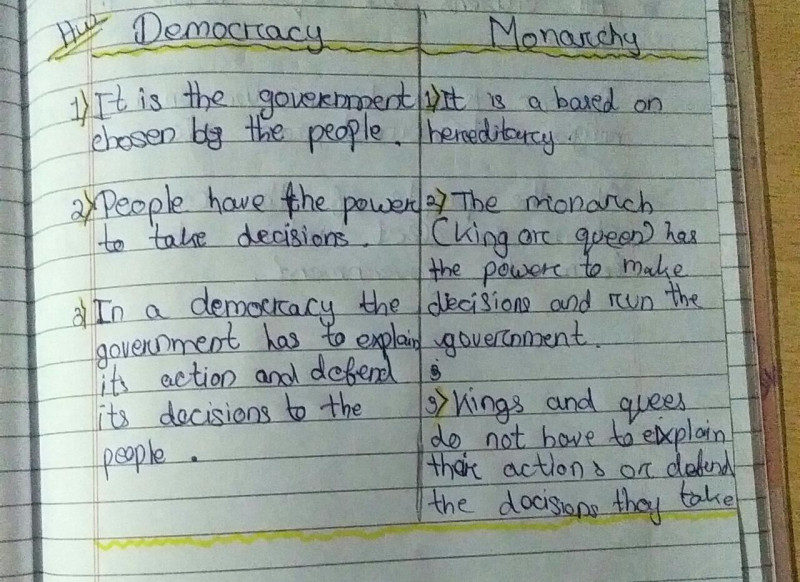 H.w Democracy
1) It is the government
chosen by the people.
2) People have the power
to take decisions.
3) In a democracy the
government has to explain
its action and defend
its decisions to the
people.
Monarchy
1) It is a based on
hereditarcy.
2) The monarch
(king or queen) has
the power to make
decisions and run the
government.
3) Kings and quees
do not have to explain
their actions or defend
the decisions they take